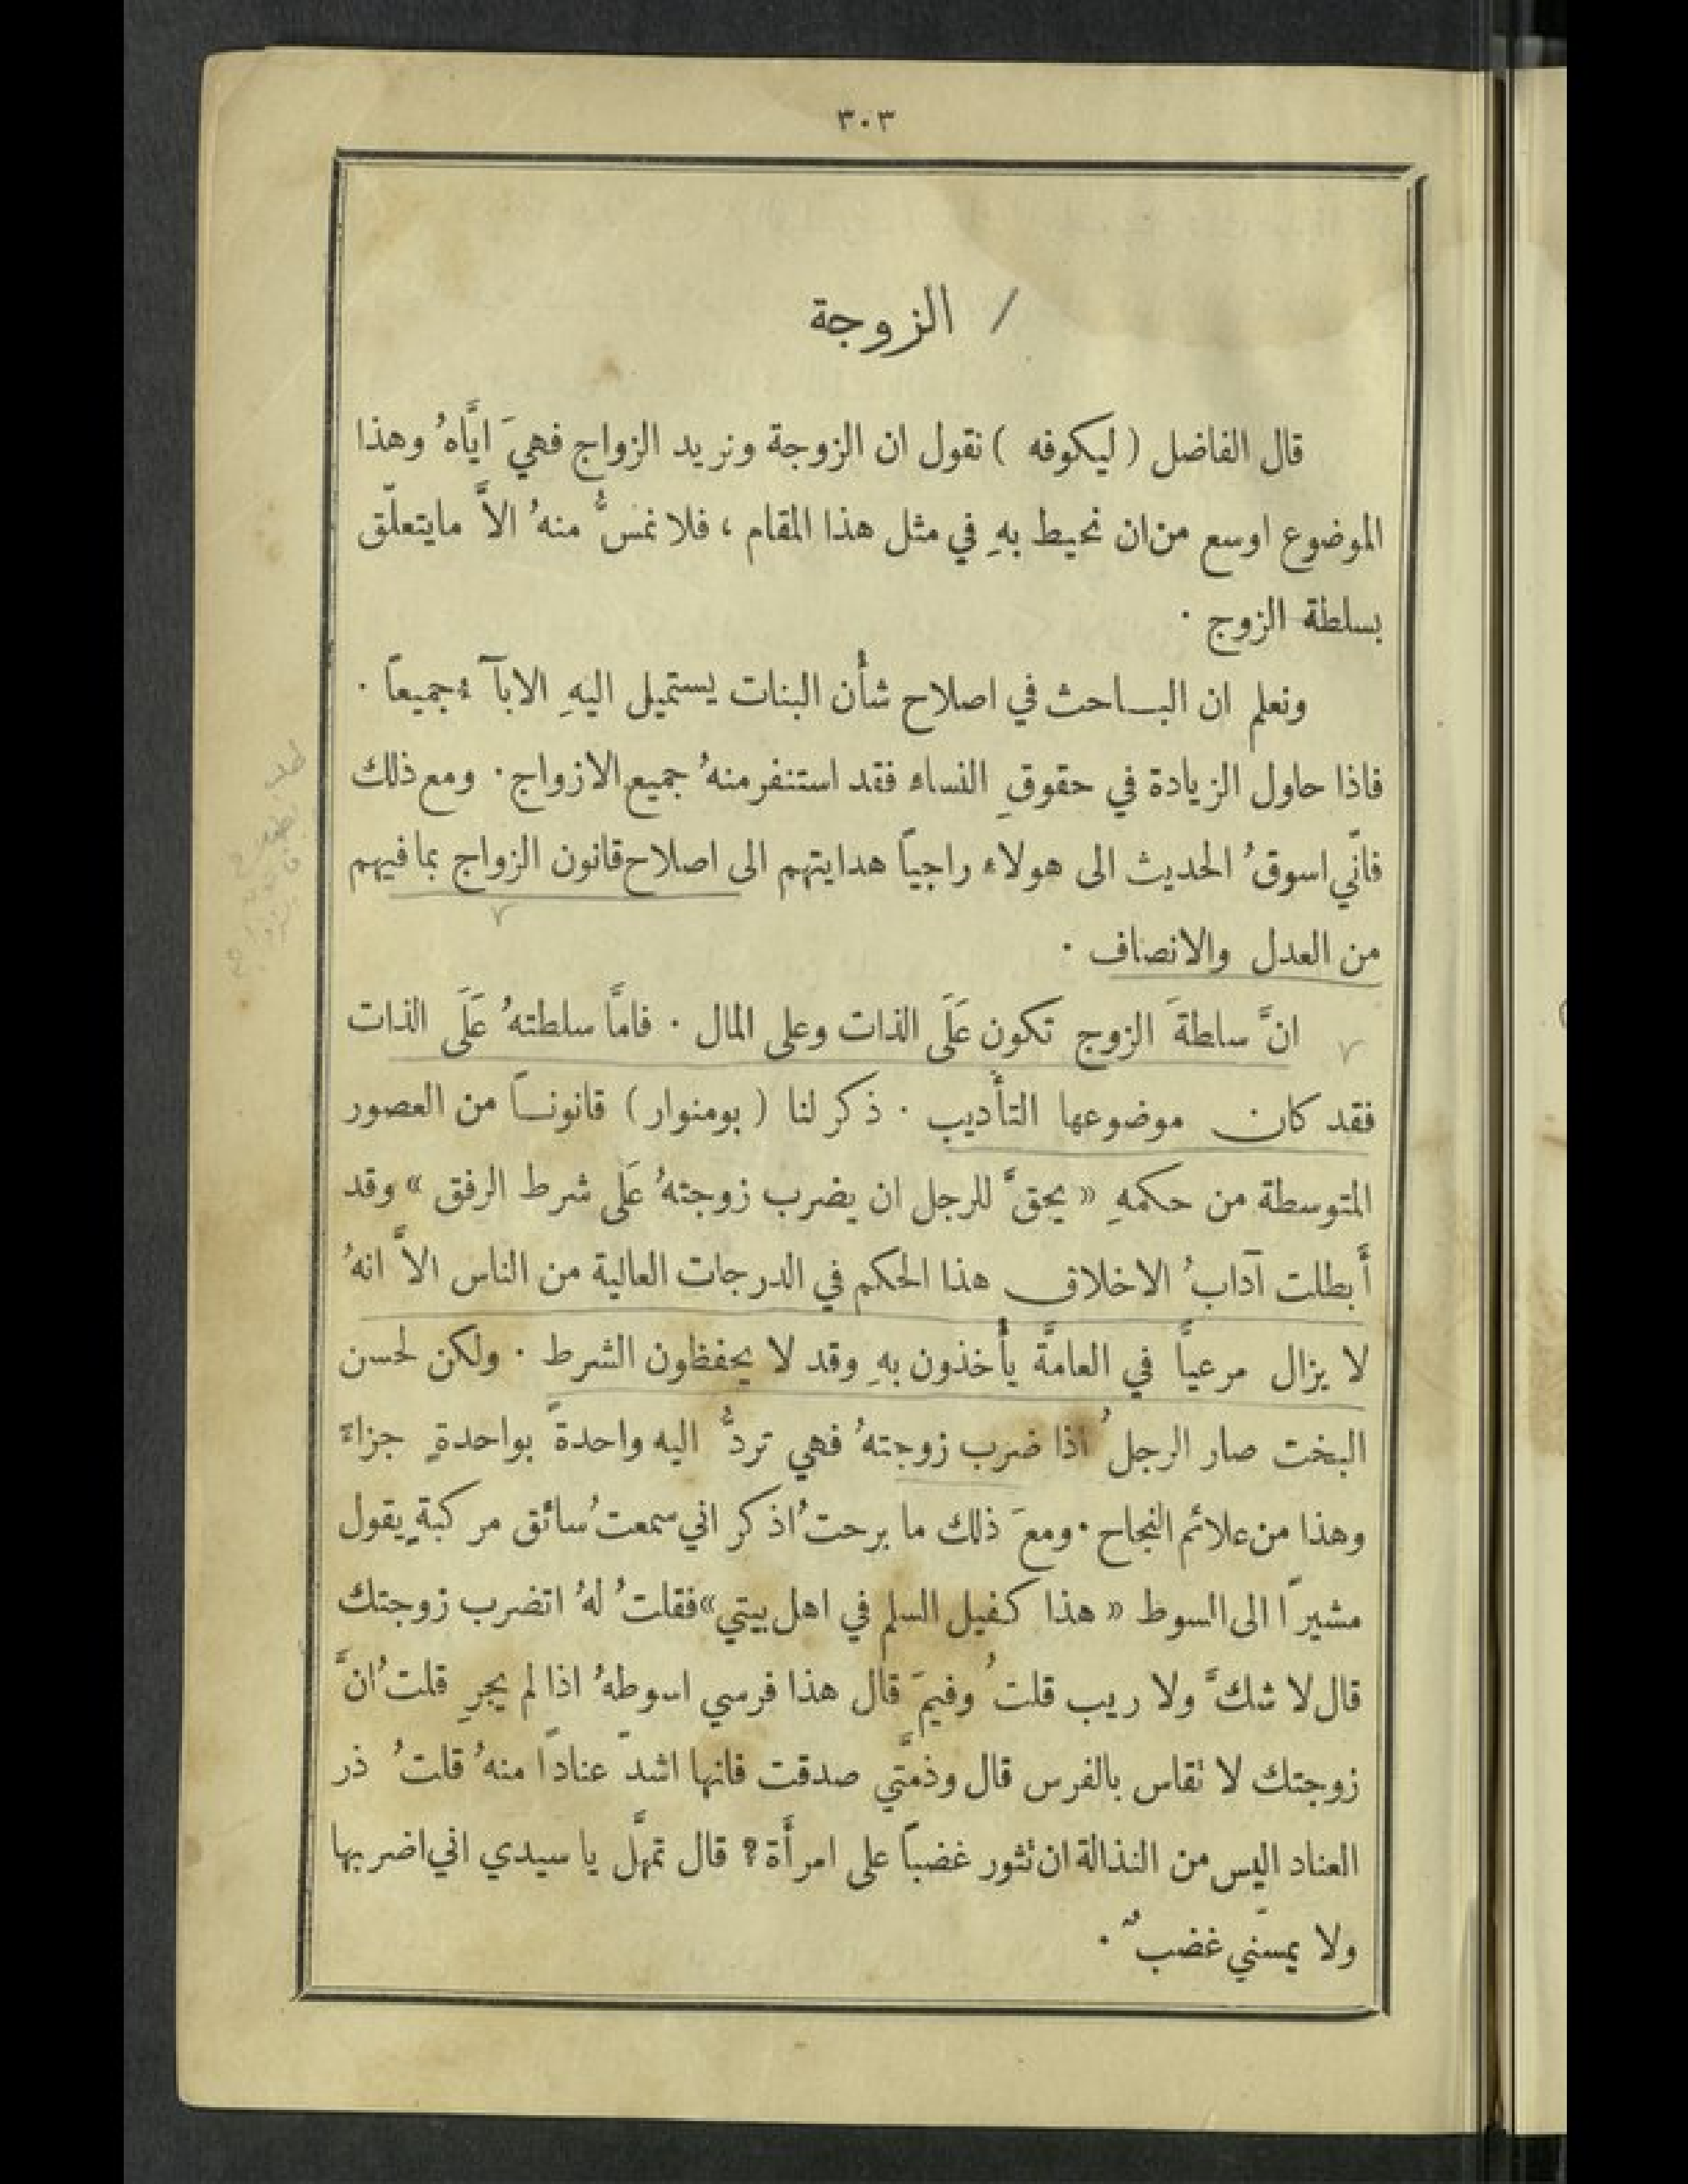 ٣٠٣
الزوجة
قال الفاضل ( ليكوفه ) نقول ان الزوجة ونريد الزواج فهيَ ايَّاهُ وهذا
الموضوع اوسع من ان نحيط بهِ في مثل هذا المقام ، فلا نمسُّ منهُ الاَّ مايتعلّق
بسلطة الزوج ·
ونعلم ان البـاحث في اصلاح شأن البنات يستميل اليهِ الابآء جميعاً ·
فاذا حاول الزيادة في حقوقِ النساء فقد استنفر منهُ جميع الازواج · ومع ذلك
فانّي اسوقُ الحديث الى هولاء راجياً هدايتهم الى اصلاح قانون الزواج بما فيهم
من العدل والانصاف ·
انَّ سلطةَ الزوج تكون عَلَى الذات وعلى المال · فامَّا سلطتهُ عَلَى الذات
فقد كان موضوعها التأديب · ذكر لنا ( بومنوار ) قانونـاً من العصور
المتوسطة من حكمهِ « يحقَّ للرجل ان يضرب زوجتهُ عَلَى شرط الرفق » وقد
أبطلت آدابُ الاخلاق هذا الحكم في الدرجات العالية من الناس الاَّ انهُ
لا يزال مرعياً في العامَّة يأخذون بهِ وقد لا يحفظون الشرط · ولكن لحسن
البخت صار الرجلُ اذا ضرب زوجتهُ فهي تردُّ اليه واحدةً بواحدةٍ جزاءً
وهذا من علائم النجاح · ومعَ ذلك ما برحتُ اذكر اني سمعتُ سائق مركبةٍ يقول
مشيراً الى السوط « هذا كفيل السلم في اهل بيتي » فقلتُ لهُ اتضرب زوجتك
قال لا شكَّ ولا ريب قلتُ وفيمَ قال هذا فرسي اسوطهُ اذا لم يجرِ قلتُ انَّ
زوجتك لا تقاس بالفرس قال وذمَّتي صدقت فانها اشدّ عناداً منهُ قلتُ ذر
العناد اليس من النذالة ان تثور غضباً على امرأة ? قال تمهَّل يا سيدي اني اضربها
ولا يمسّني غضبٌ ·